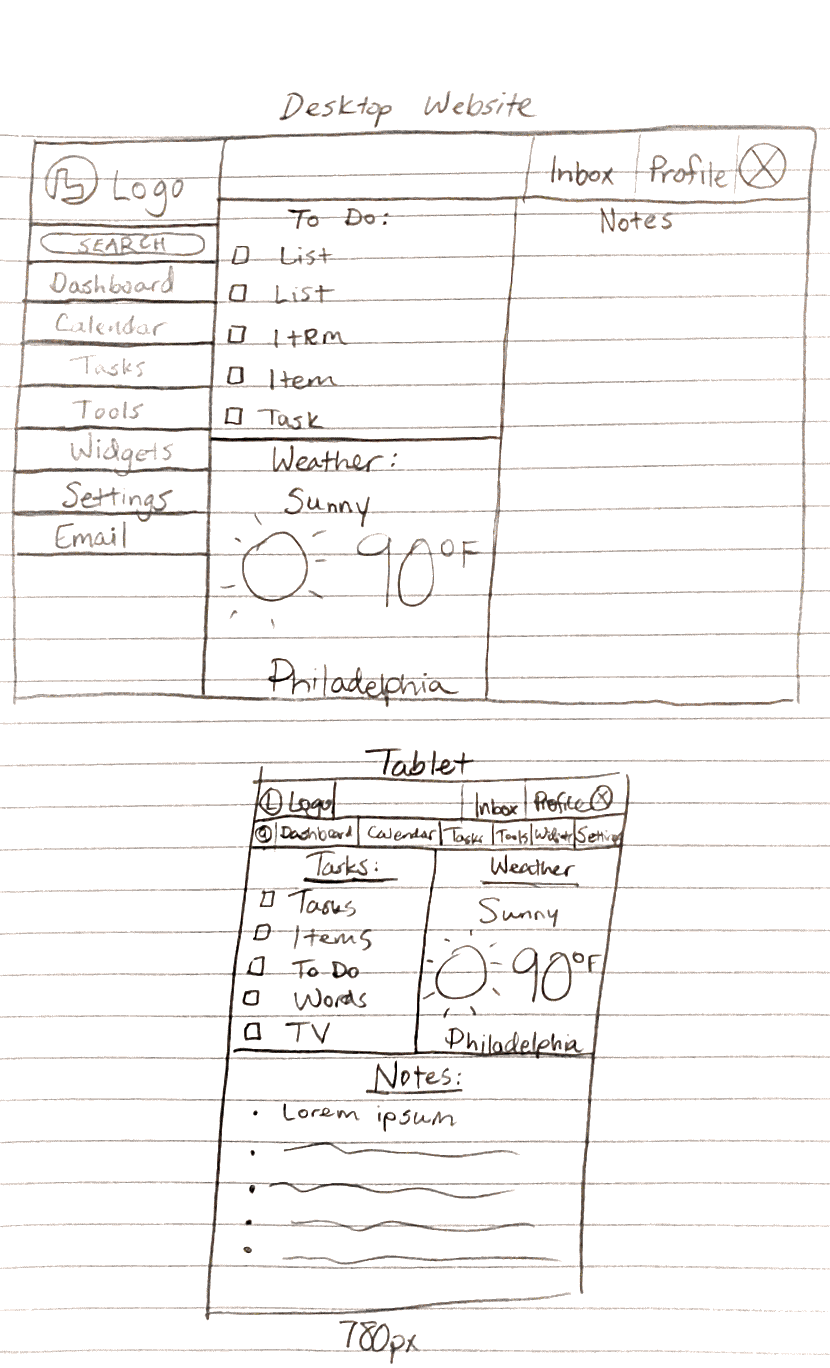 Desktop Website
Logo
Inbox Profile
SEARCH
Dashboard
Calendar
Tasks
Tools
Widgets
Settings
Email
To Do:
List
List
Item
Item
Task
Weather:
Sunny
90°F
Philadelphia
Notes
Tablet
L Logo Inbox Profile
Dashboard Calendar Tasks Tools Widgets Setting
Tasks:
Tasks
Items
To Do
Words
TV
Weather
Sunny
90°F
Philadelphia
Notes:
• Lorem ipsum
780px